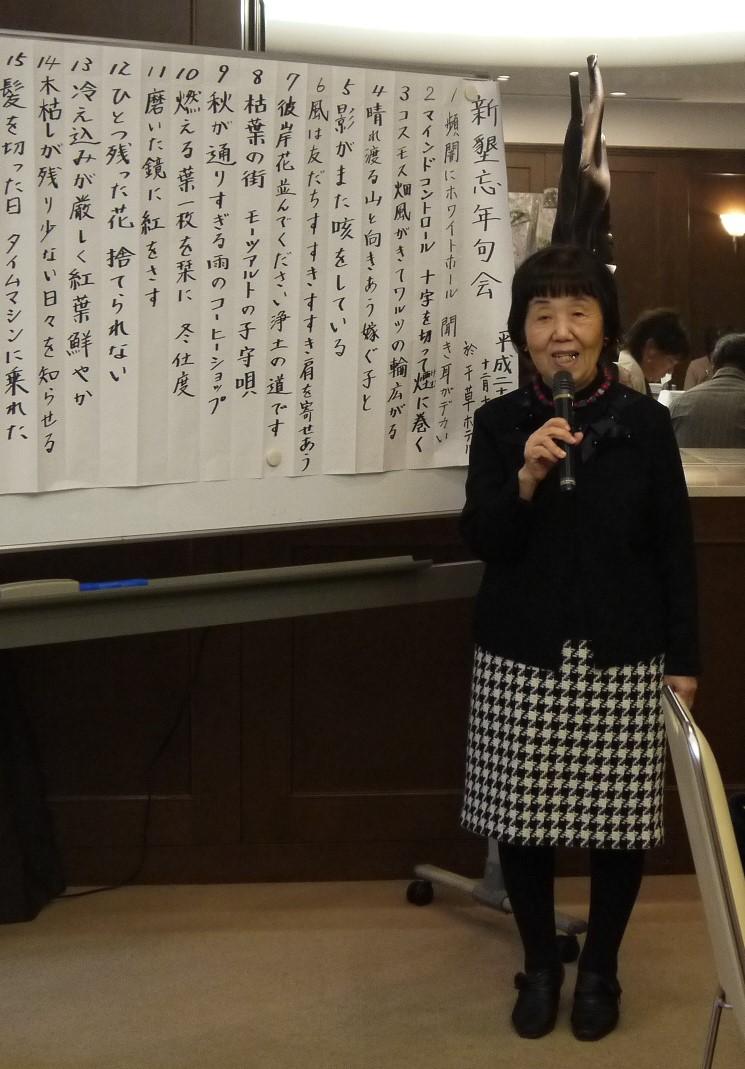 新墾忘年句会
平成二十
十二月
於千草ホテル
1 頻闇にホワイトホール 聞き耳がデカい
2 マインドコントロール 十字を切って煙に巻く
3 コスモス畑風がきてワルツの輪広がる
4 晴れ渡る山と向きあう嫁ぐ子と
5 影がまた咳をしている
6 風は友だちすすきすすき肩を寄せあう
7 彼岸花並んでください浄土の道です
8 枯葉の街 モーツアルトの子守唄
9 秋が通りすぎる雨のコーヒーショップ
10 燃える葉一枚を栞に 冬仕度
11 磨いた鏡に紅をさす
12 ひとつ残った花 捨てられない
13 冷え込みが厳しく紅葉鮮やか
14 木枯しが残り少ない日々を知らせる
15 髪を切った日 タイムマシンに乗れた